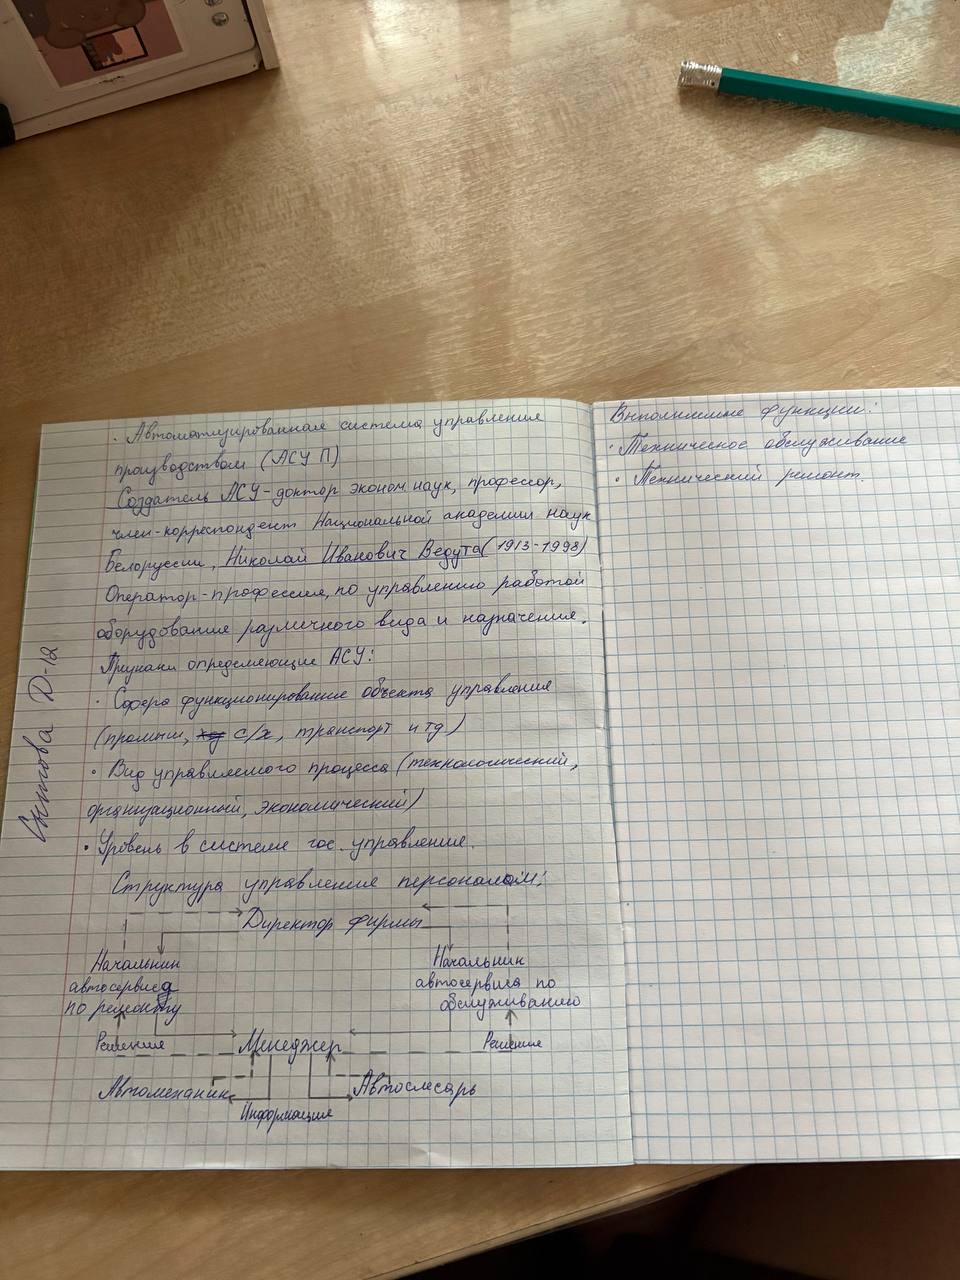 · Автоматизированная система управления
производством (АСУ П)
Создатель АСУ-доктор эконом наук, профессор,
член-корреспондент Национальной академии наук
Белоруссии, Николай Иванович Ведута (1913-1998)
Оператор-профессия, по управлению работой
оборудования различного вида и назначения.
Признаки определяющие АСУ:
· Сфера функционирование объекта управления
(промышл, с/х, транспорт и тд)
· Вид управляемого процесса (технологический,
организационный, экономический)
· Уровень в системе гос. управления.
Структура управления персоналом:
Директор фирмы
Начальник
автосервиса
по ремонту
Начальник
автосервиса по
обслуживанию
Решения
Менеджер
Решения
Автомеханик
Автослесарь
Информация
Д-12
Выполнимые функции:
· Техническое обслуживание
· Технический ремонт.